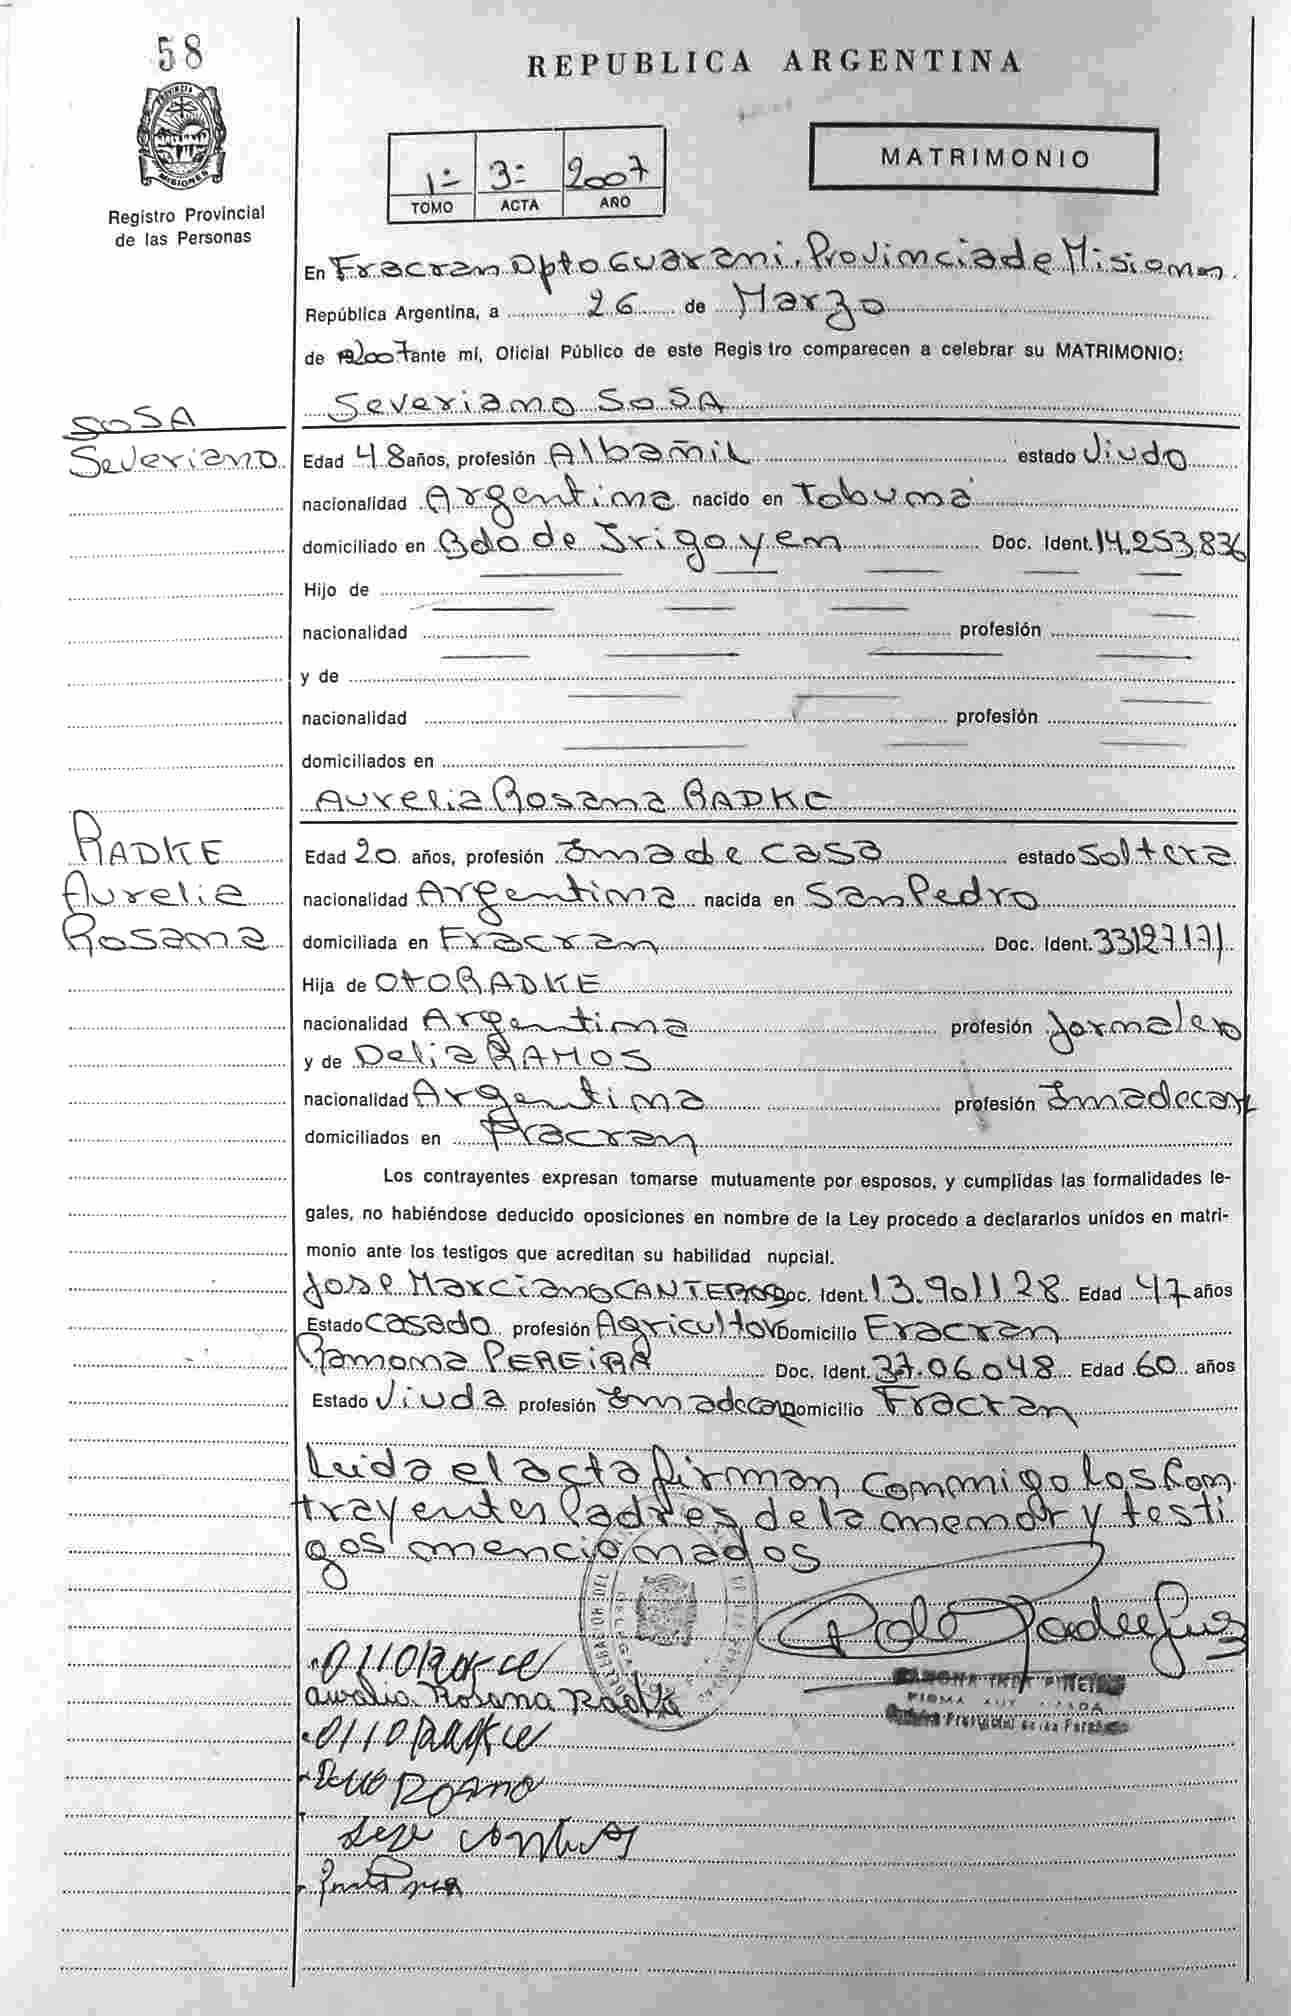 58
REPUBLICA ARGENTINA
PROVINCIA DE
MISIONES
Registro Provincial
de las Personas
1= 3= 2007
TOMO ACTA AÑO
MATRIMONIO
En Fracran Dpto Guarani, Provincia de Misiones
República Argentina, a 26 de Marzo
de 2007 ante mí, Oficial Público de este Registro comparecen a celebrar su MATRIMONIO:
Severiano SOSA
SOSA
Severiano
Edad 48 años, profesión Albañil estado Viudo
nacionalidad Argentina nacido en Tobuna
domiciliado en Bdo de Irigoyen Doc. Ident. 14.253.836
Hijo de
nacionalidad profesión
y de
nacionalidad profesión
domiciliados en
Aurelia Rosana RADKE
RADKE
Aurelia
Rosana
Edad 20 años, profesión Ama de casa estado Soltera
nacionalidad Argentina nacida en San Pedro
domiciliada en Fracran Doc. Ident. 33127171
Hija de Oto RADKE
nacionalidad Argentina profesión Jornalero
y de Delia RAMOS
nacionalidad Argentina profesión Ama de casa
domiciliados en Fracran
Los contrayentes expresan tomarse mutuamente por esposos, y cumplidas las formalidades le-
gales, no habiéndose deducido oposiciones en nombre de la Ley procedo a declararlos unidos en matri-
monio ante los testigos que acreditan su habilidad nupcial.
Jose Marciano CANTEROS Doc. Ident. 13.901128 Edad 47 años
Estado Casado profesión Agricultor Domicilio Fracran
Ramona PEREIRA Doc. Ident. Edad 60 años
Estado Viuda profesión Ama de casa Domicilio Fracran
Leida el acta firman conmigo los Con
trayentes Padres de la menor y testi
gos mencionados
Aurelia Rosana Radke